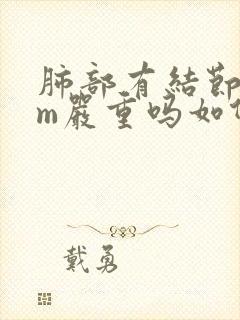 肺部有結節
m嚴重吗如
戴勇